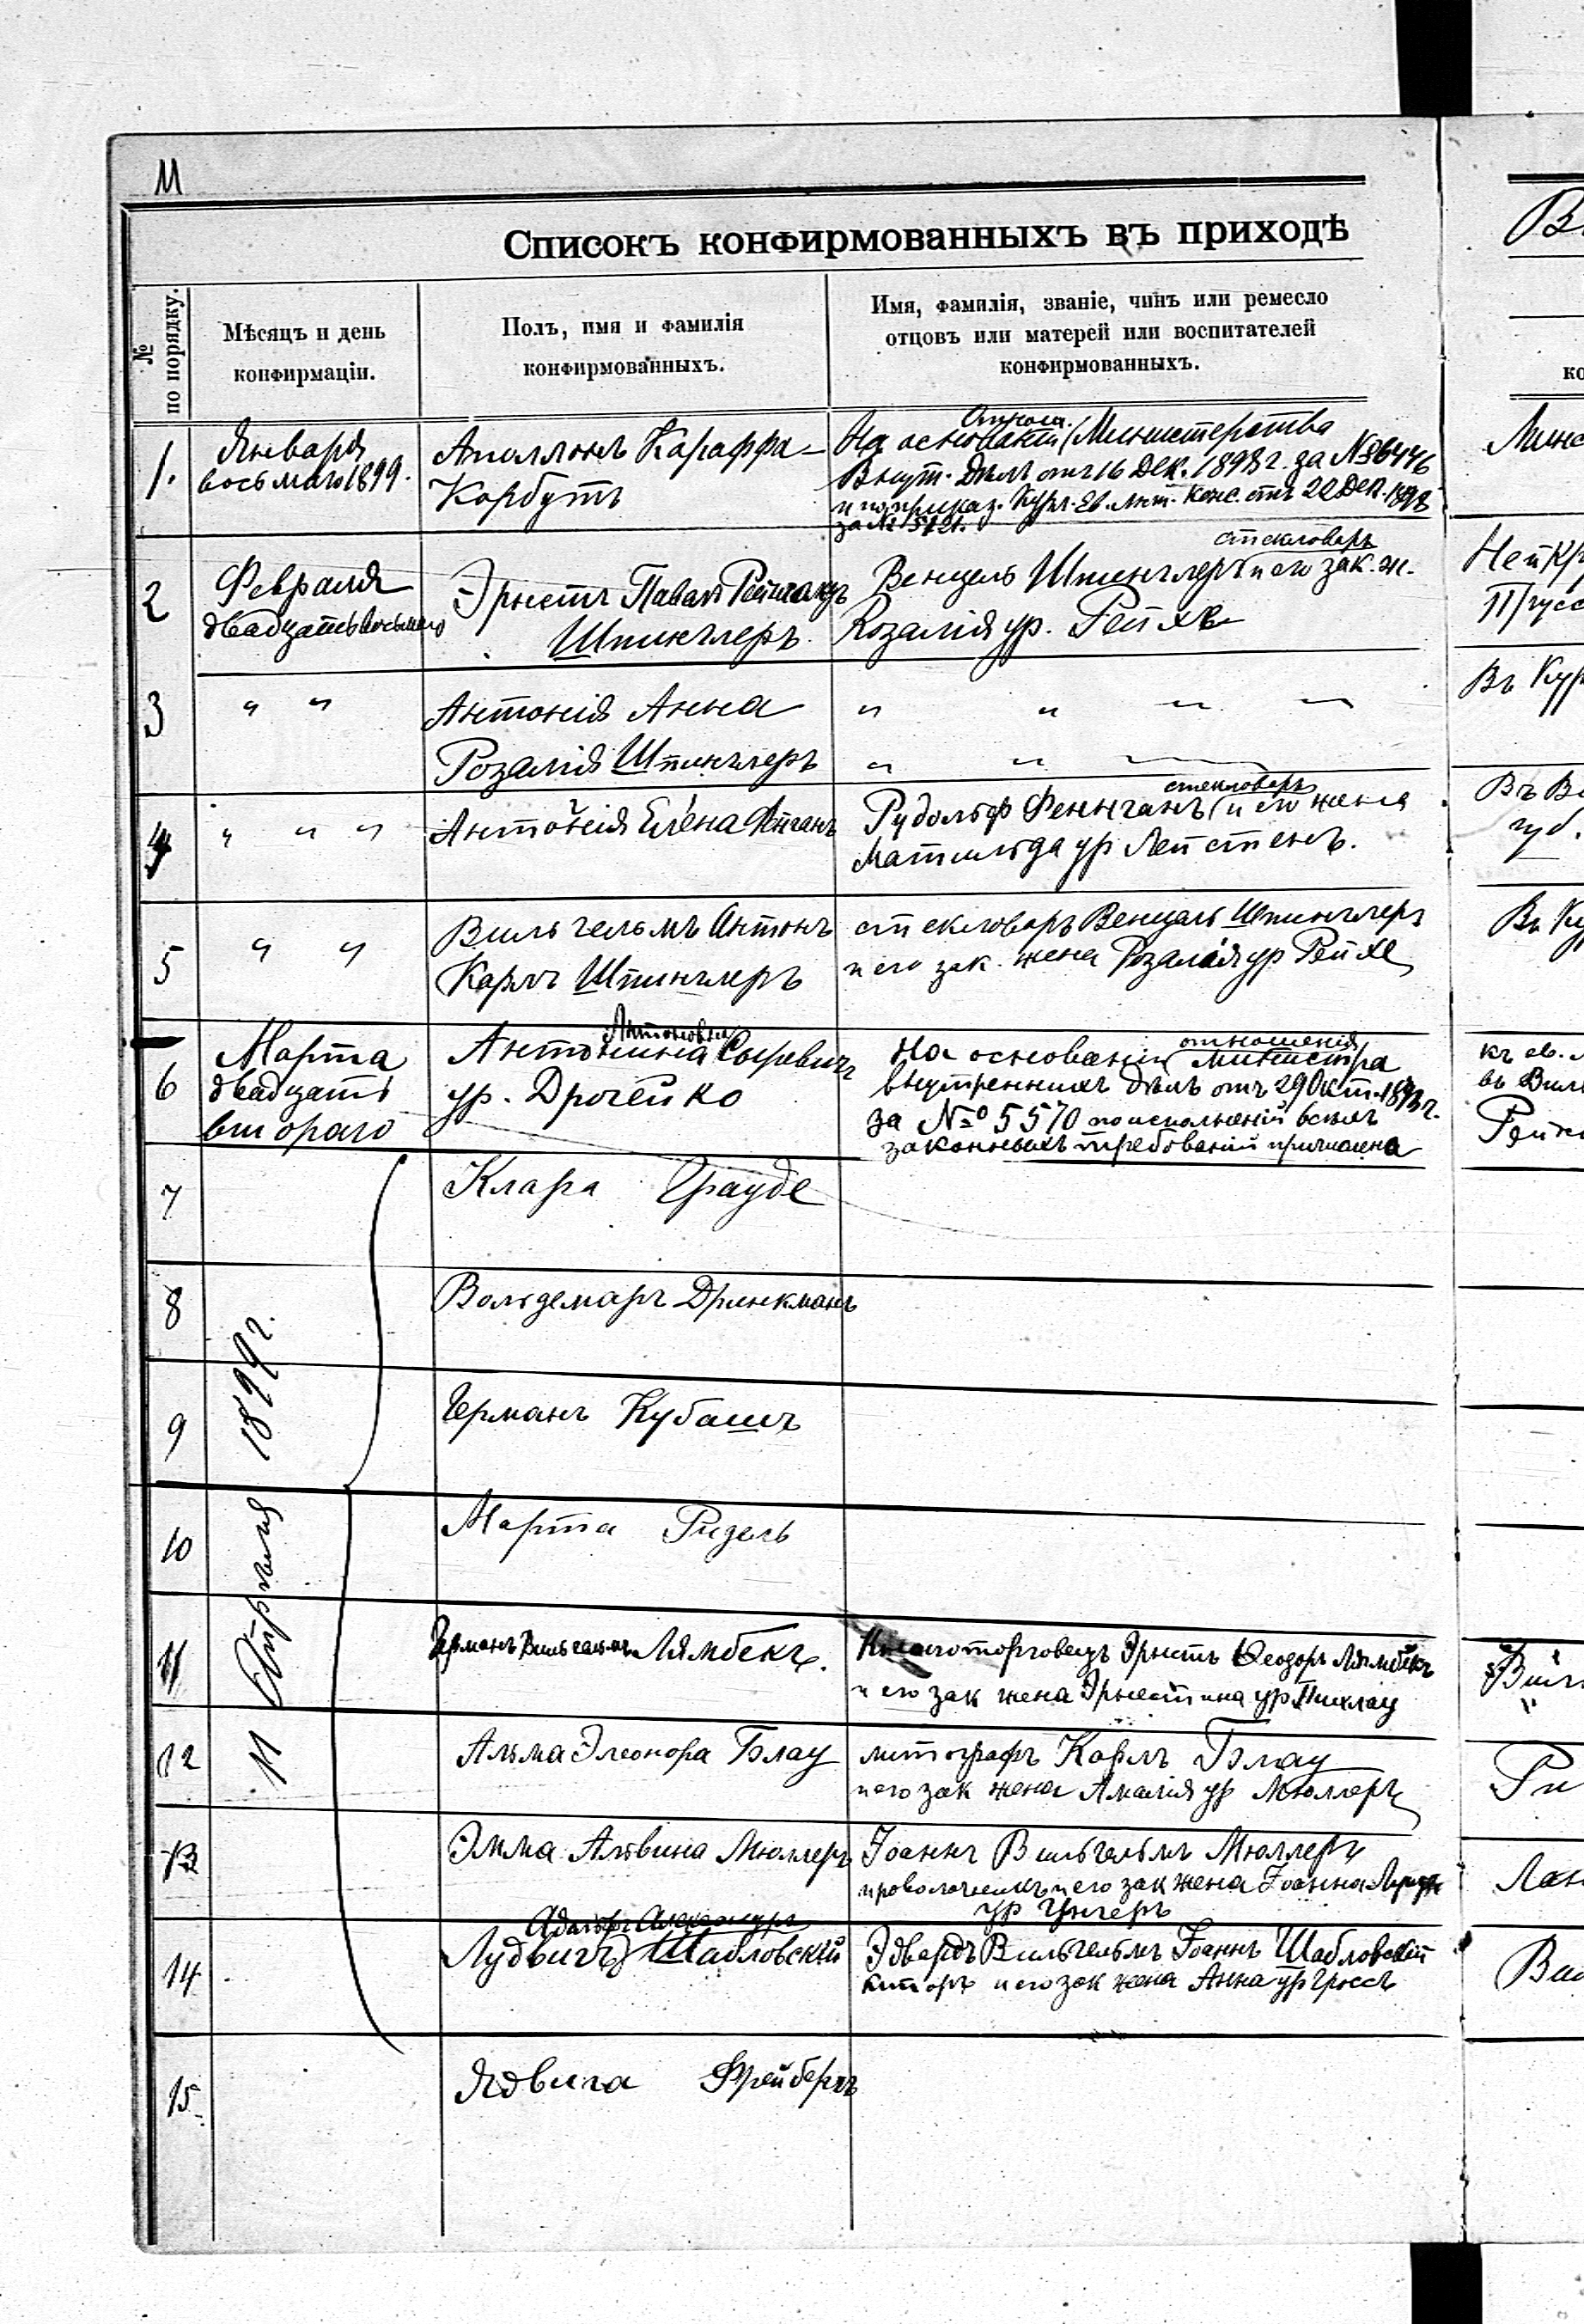 М
Списокъ конфирмованныхъ въ приходѣ
№ по порядку.
Мѣсяцъ и день
конфирмаціи.
Полъ, имя и фамилія
конфирмованныхъ.
Имя, фамилія, званіе, чинъ или ремесло
отцовъ или матерей или воспитателей
конфирмованныхъ.
1.
Января
восьмаго 1899.
Аполлонъ Караффа-
Корбутъ
Отнош.
На основаніи Министерства
Внут. Дѣлъ отъ 16 Дек. 1898 г. за № 6446
и по приказ. Курл. Ев. Лют. Конс. отъ 22 Дек. 1898
за № 5121.
2
Февраля
двадцать восьмаго
Эрнстъ Павелъ
Шпинглеръ
стекловаръ
Венцель Шпинглеръ и его зак. ж.
Розалія ур. Рейхе
3
" "
Антонія Анна
Розалія Шпинглеръ
" " " "
" "
4
" " "
Антонія Елена
стекловаръ
Рудольф Феннганъ и его жена
Матильда ур
5
" "
Вильгельмъ Антонъ
Карлъ Шпинглеръ
стекловаръ Венцель Шпинглеръ
и его зак. жена Розалія ур Рейхе
6
Марта
двадцать
втораго
Антоновна
Антонина Сыревичъ
ур. Дрогейко
отношенія
На основаніи Министра
внутреннихъ дѣлъ отъ 29 Окт. 1898 г.
за № 5570 по исполненій всѣхъ
законныхъ требованій
7
Клара Грауде
8
Вольдемаръ Дринкманъ
9
Германъ Кубашъ
10
Марта Ридель
11 Апрѣля 1899 г.
11
Германъ Вильгельмъ Лямбекъ.
Книготорговецъ Эрнстъ Ѳеодоръ Лямбекъ
и его зак жена Эрнестина ур Пихлау
12
Альма Элеонора Блау
литографъ Карлъ Блау
и его зак жена Амалія ур Мюллеръ
13
Эмма Альвина Мюллеръ
Іоаннъ Вильгельмъ Мюллеръ
проволочникъ и его зак жена Іоанна
ур Унгеръ
14
Адольфъ Александръ
Лудвигъ Шабловскій
Эдвардъ Вильгельмъ Іоаннъ Шабловскій
и его зак жена Анна ур
15
Ядвига Фрейбергъ
Въ Кур
Прусс
губ.